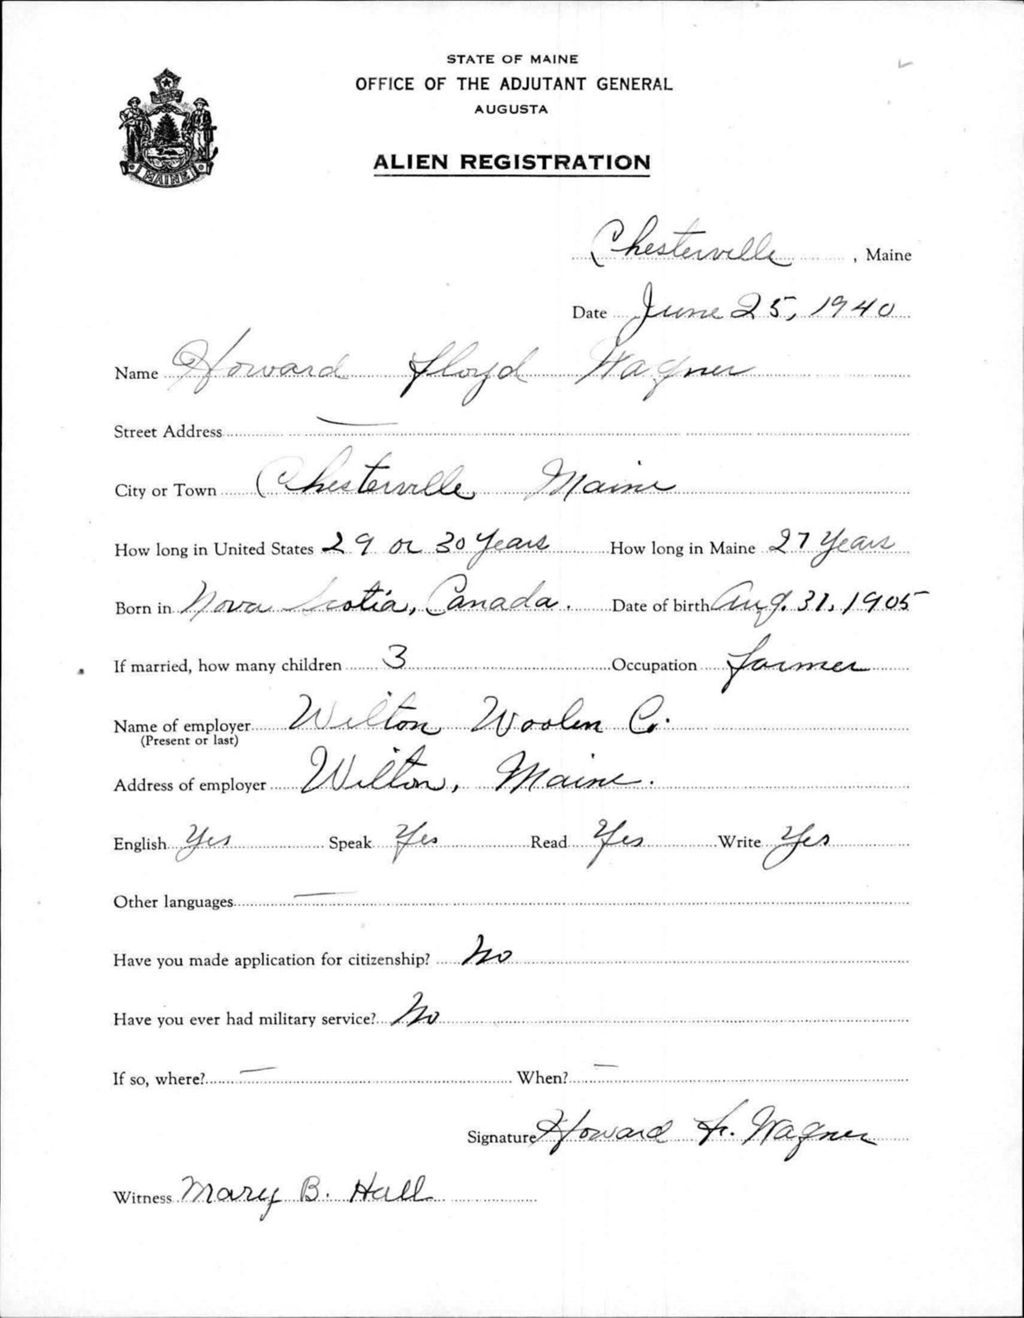 STATE OF MAINE
OFFICE OF THE ADJUTANT GENERAL
AUGUSTA
ALIEN REGISTRATION
MAINE
Chesterville, Maine
Date June 25, 1940
Name Howard Floyd Wagner
Street Address —
City or Town Chesterville, Maine
How long in United States 29 or 30 Years How long in Maine 27 Years
Born in Nova Scotia, Canada. Date of birth Aug. 31, 1905
If married, how many children 3 Occupation farmer
Name of employer Wilton Woolen Co.
(Present or last)
Address of employer Wilton, Maine.
English Yes Speak Yes Read Yes Write Yes
Other languages —
Have you made application for citizenship? No
Have you ever had military service? No
If so, where? — When? —
Signature Howard F. Wagner
Witness Mary B. Hall